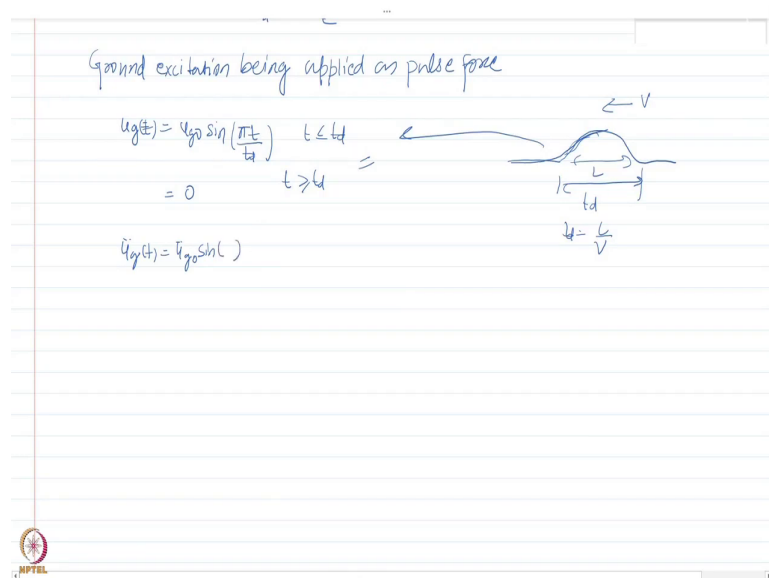 Ground excitation being applied as pulse force
ug(t) = ugo sin(πt/td) t ≤ td
= 0 t ≥ td
=
← V
L
td
td = L/V
üg(t) = ügo sin( )
NPTEL